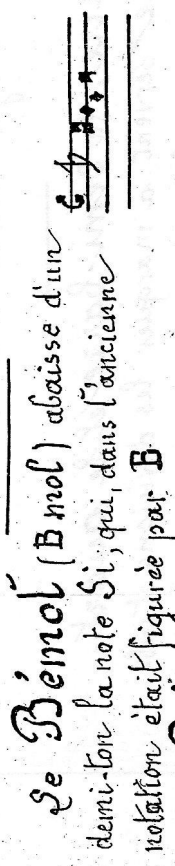 Le Bémol (B mol) abaisse d'un
demi-ton la note Si, qui, dans l'ancienne
notation était figurée par B